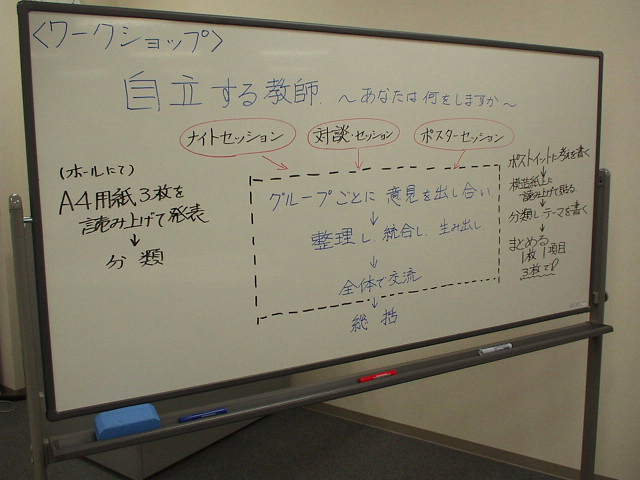 〈ワークショップ〉
自立する教師 ～あなたは何をしますか～
ナイトセッション
対談・セッション
ポスターセッション
(ホールにて)
A4用紙3枚を
読み上げて発表
↓
分類
グループごとに意見を出し合い
↓
整理し、統合し、生み出し
↓
全体で交流
↓
総括
ポストイットに考えを書く
↓
模造紙上に
読み上げて貼る
↓
分類しテーマを書く
↓
まとめる
1枚1項目
3枚でP